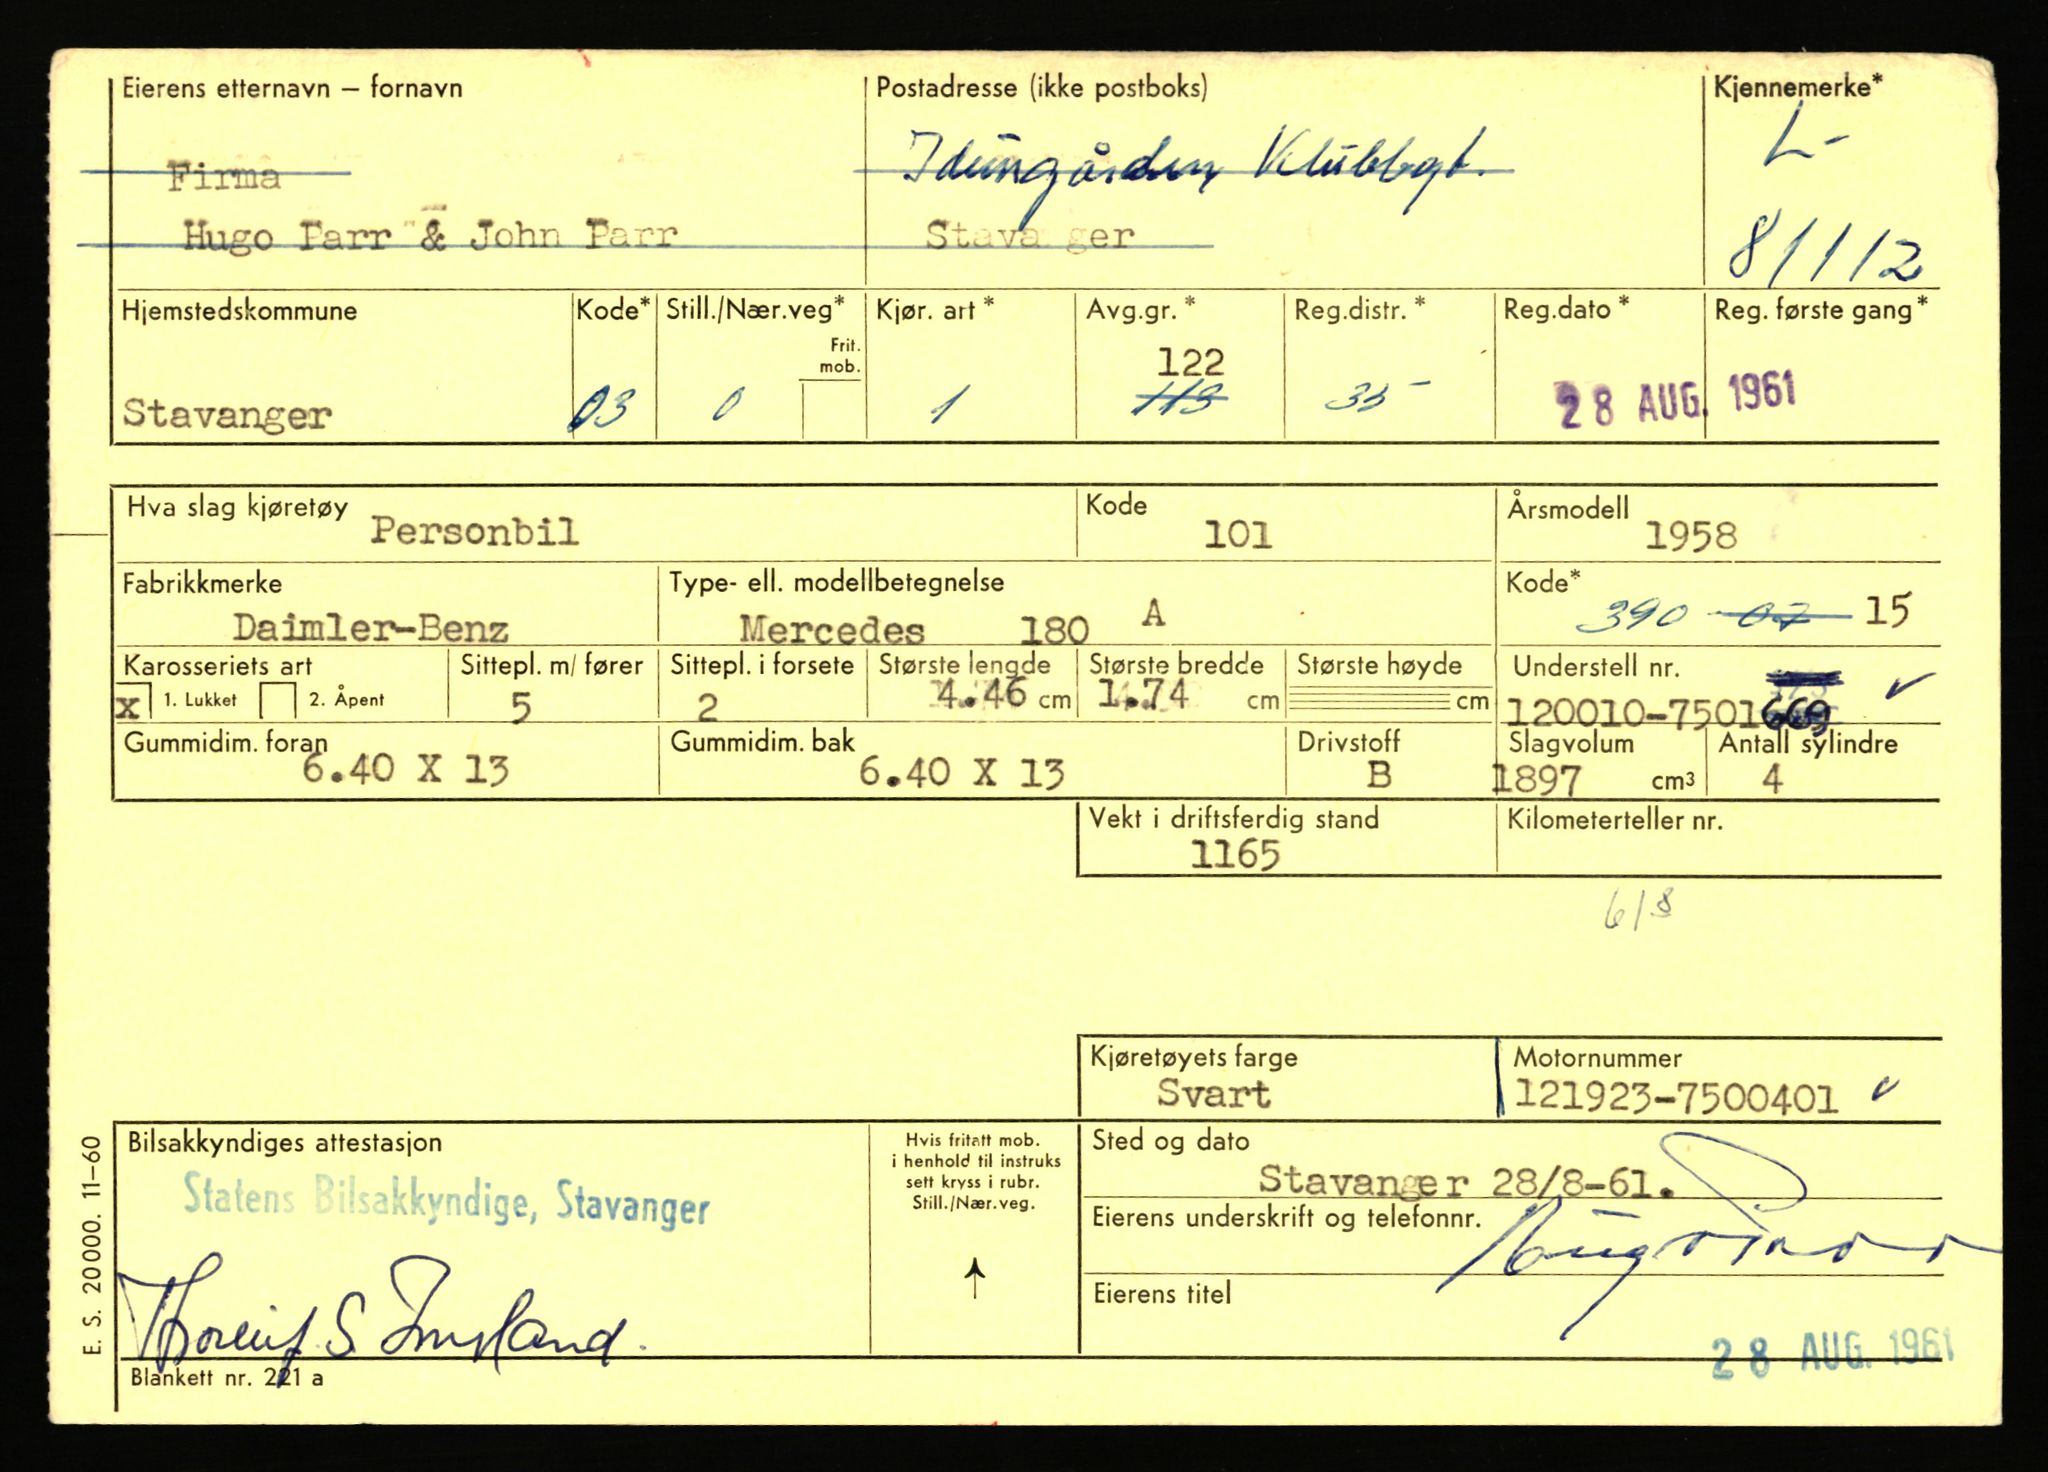 Eierens etternavn – fornavn
Postadresse (ikke postboks)
Kjennemerke*
Firma
Idungården Klubbgt.
L-
Hugo Parr & John Parr
Stavanger
81112
Hjemstedskommune
Kode*
Still./Nær.veg*
Frit. mob.
Kjør. art*
Avg.gr.*
Reg.distr.*
Reg.dato*
Reg. første gang*
122
Stavanger
03
0
1
113
35-
28 AUG. 1961
Hva slag kjøretøy
Personbil
Kode
101
Årsmodell
1958
Fabrikkmerke
Daimler-Benz
Type- ell. modellbetegnelse
Mercedes 180 A
Kode*
390 07 15
Karosseriets art
x 1. Lukket 2. Åpent
Sittepl. m/ fører
5
Sittepl. i forsete
2
Største lengde
4.46 cm
Største bredde
1.74 cm
Største høyde
cm
Understell nr.
120010-7501669
Gummidim. foran
6.40 X 13
Gummidim. bak
6.40 X 13
Drivstoff
B
Slagvolum
1897 cm³
Antall sylindre
4
Vekt i driftsferdig stand
1165
Kilometerteller nr.
6/8
Kjøretøyets farge
Svart
Motornummer
121923-7500401
Bilsakkyndiges attestasjon
Statens Bilsakkyndige, Stavanger
Hvis fritatt mob.
i henhold til instruks
sett kryss i rubr.
Still./Nær.veg.
Sted og dato
Stavanger 28/8-61.
Eierens underskrift og telefonnr.
Hugo Parr
Eierens titel
28 AUG. 1961
E. S. 20000. 11–60
Blankett nr. 221 a